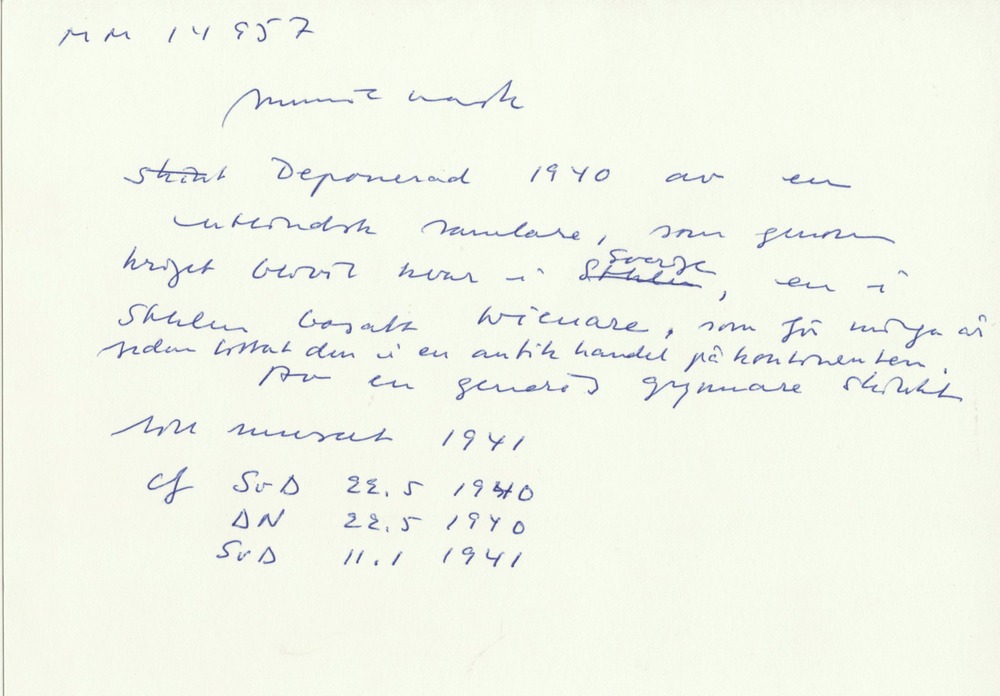 MM 14957
mumiemask
skänkt Deponerad 1940 av en
utländsk samlare, som genom
kriget blivit kvar i Sthlm Sverige, en i
Sthlm bosatt wienare, som för många år
sedan hittat den i en antikhandel på kontinenten.
Av en generös gynnare skänkt
till museet 1941
cf SvD 22.5 1940
DN 22.5 1940
SvD 11.1 1941